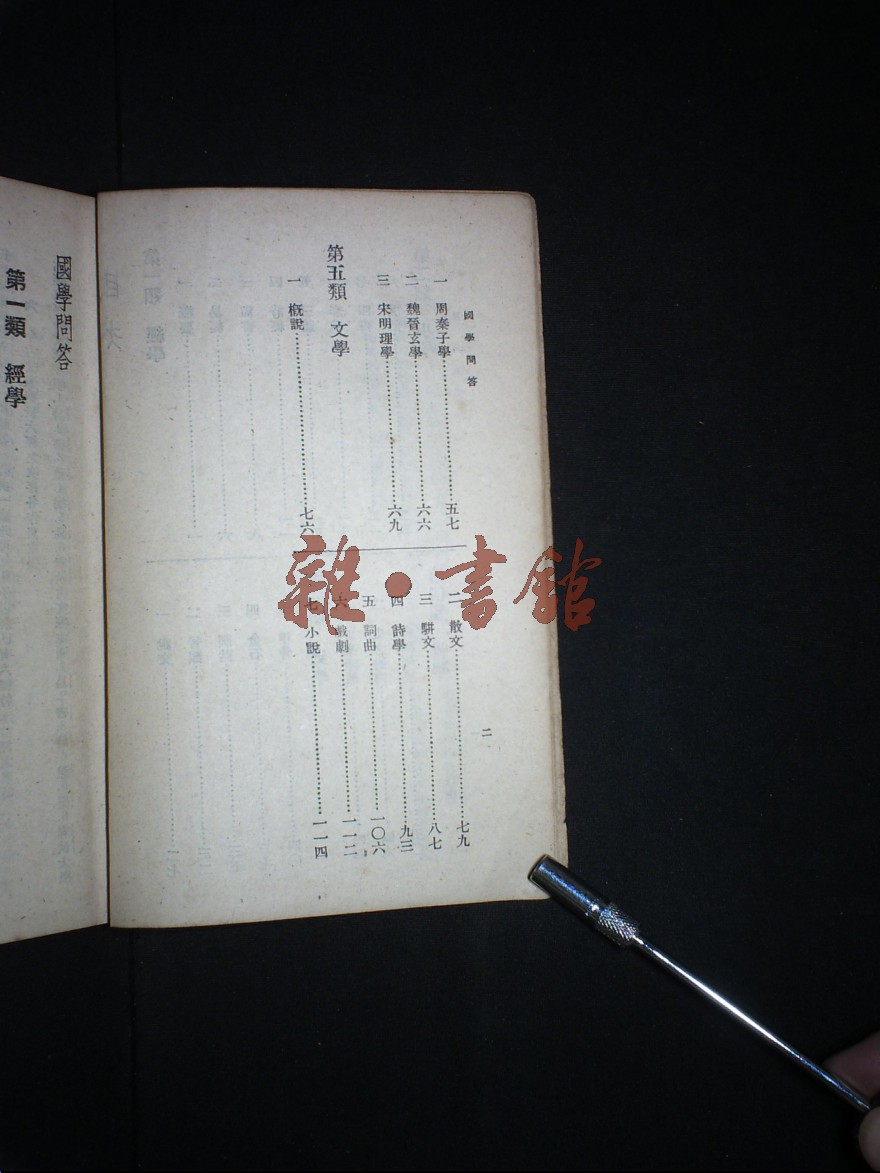 國學問答
一 周秦子學⋯⋯五七
二 魏晉玄學⋯⋯六六
三 宋明理學⋯⋯六九
第五類 文學
一 概說⋯⋯七六
二 散文⋯⋯七九
三 駢文⋯⋯八七
四 詩學⋯⋯九三
五 詞曲⋯⋯一〇六
六 戲劇⋯⋯一一二
七 小說⋯⋯一一四
二
國學問答
第一類 經學
雜·書館